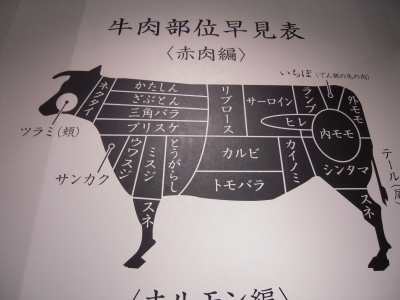 牛肉部位早見表
〈赤肉編〉
いちぼ(でん部の先の肉)
ネクタイ
かたしん
ざぶとん
三角バラ
ブリスケ
リブロース
サーロイン
ランプ
ヒレ
外モモ
内モモ
ツラミ(頬)
サンカク
ウワスジ
ミスジ
とうがらし
カルビ
カイノミ
トモバラ
シンタマ
テール(尾)
スネ
スネ
〈ホルモン編〉